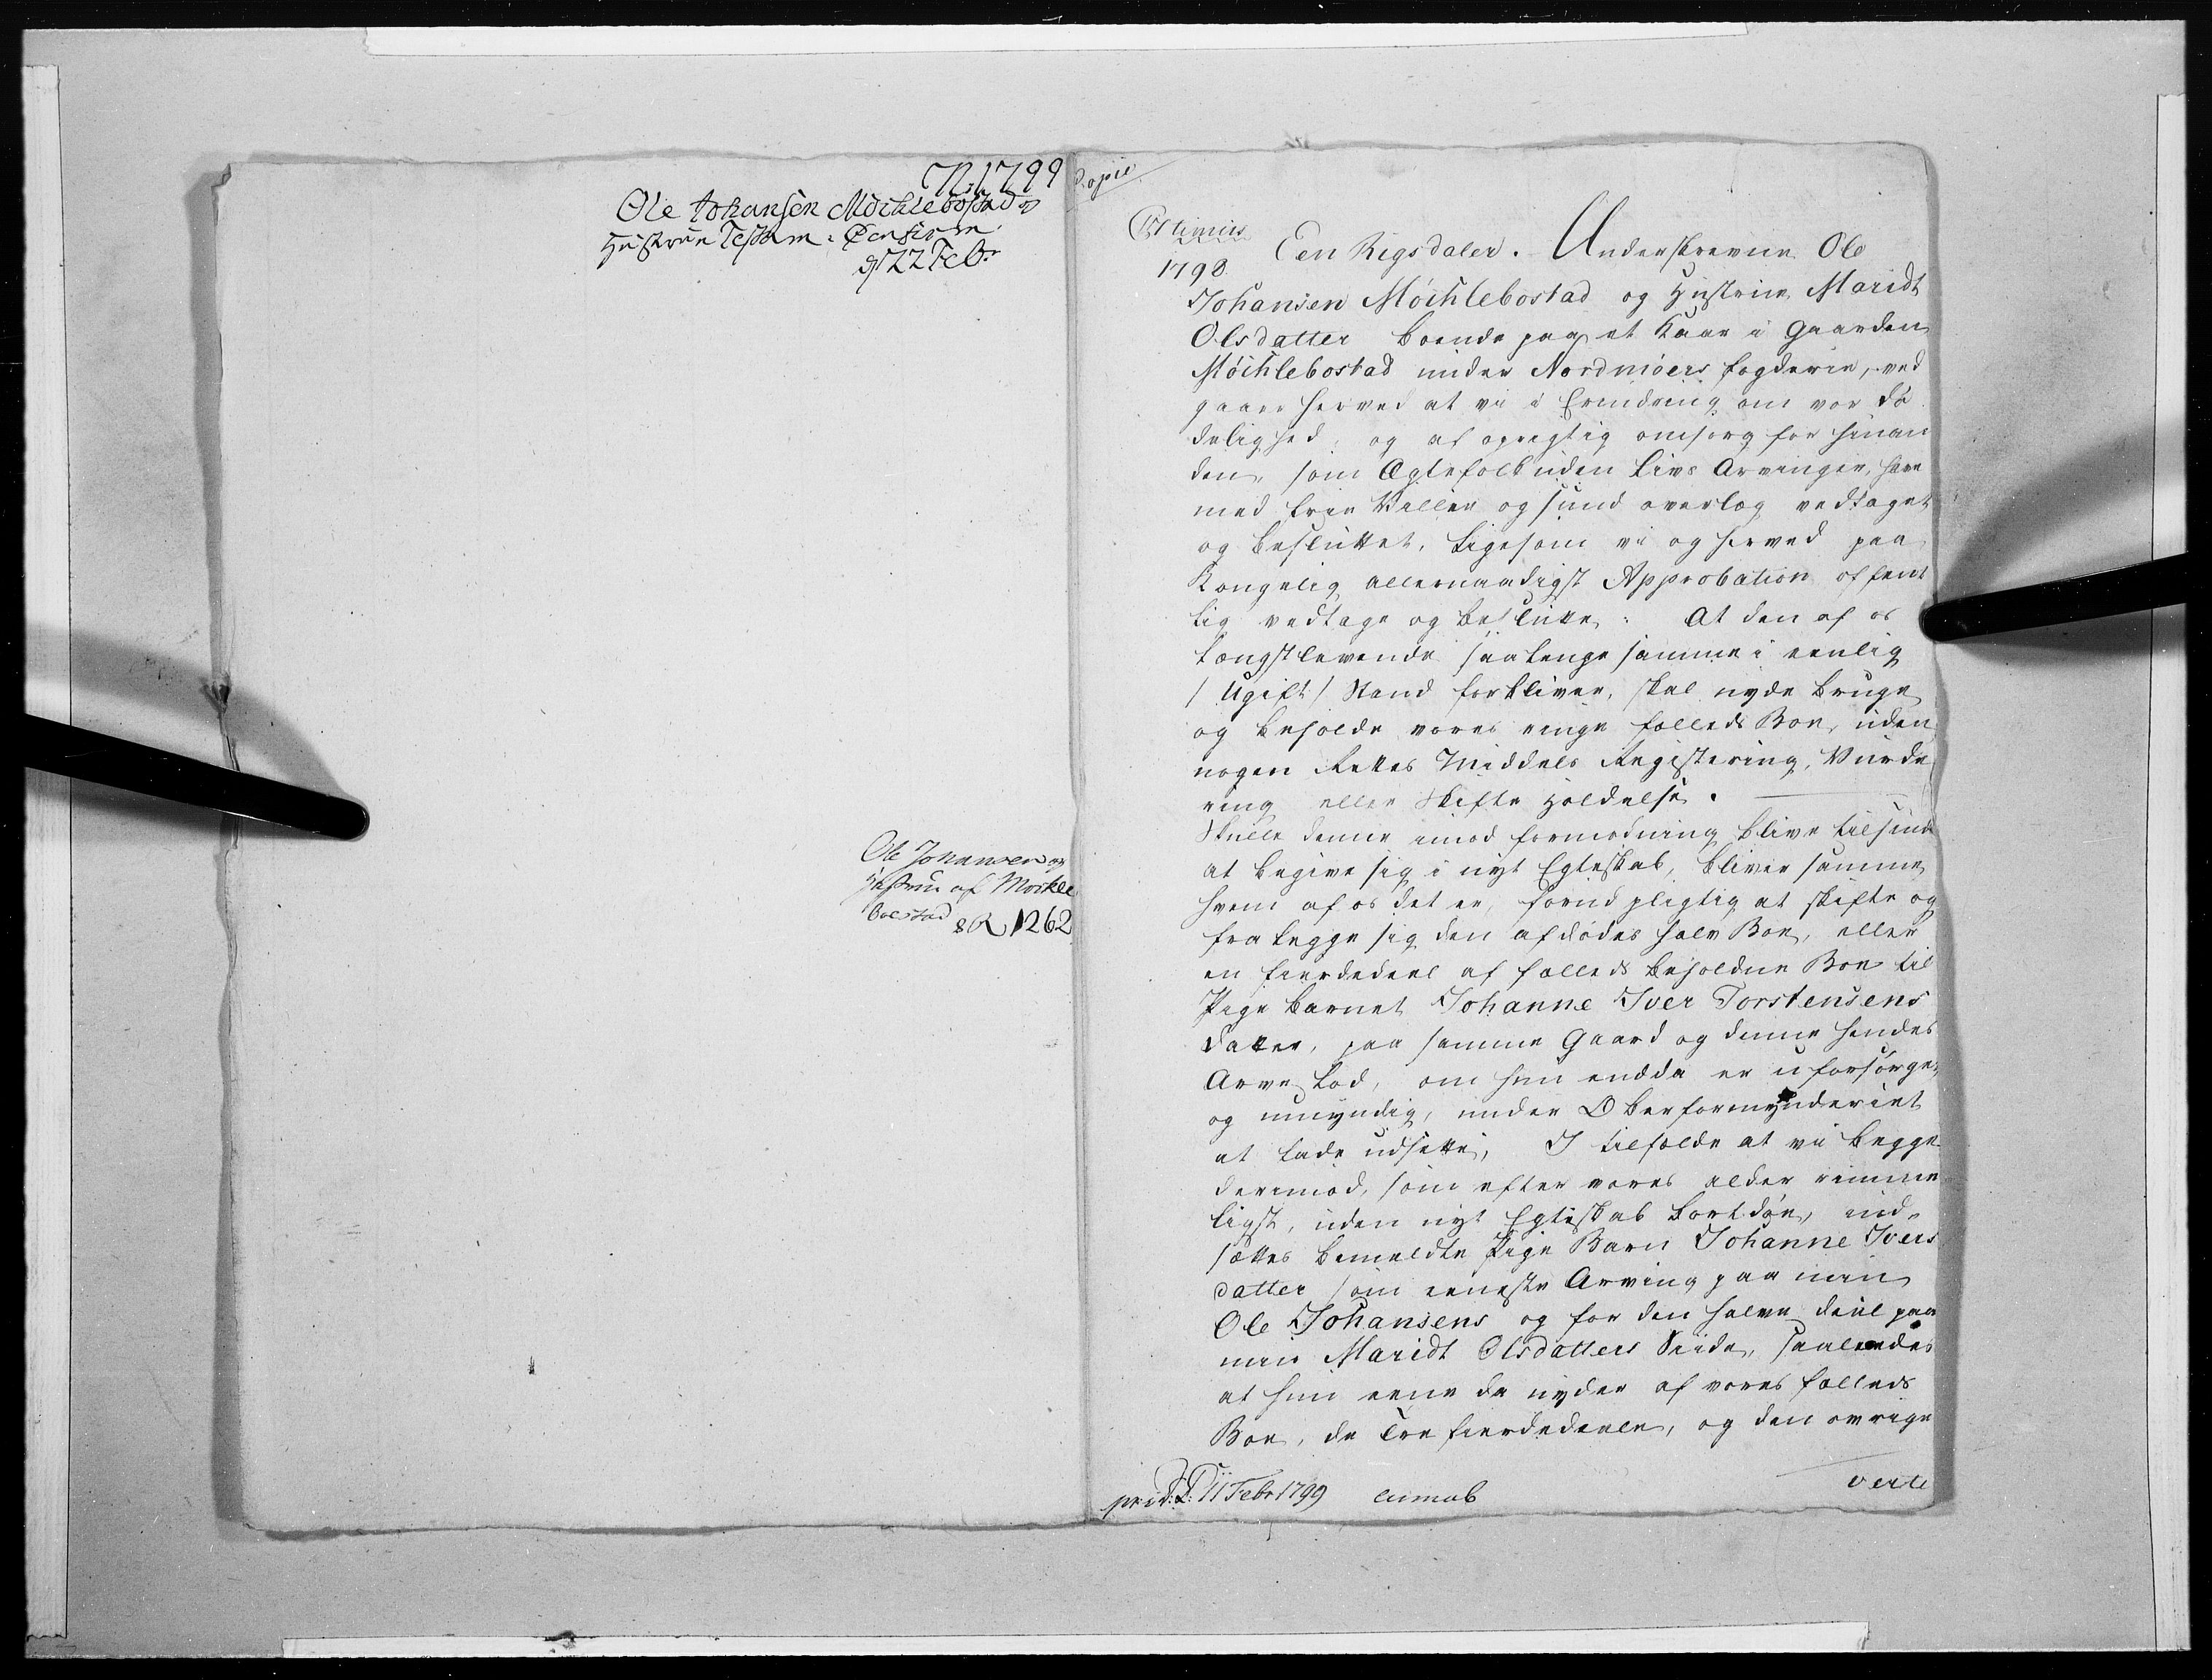 N: 1799
Ole Johansen Möchlebostad og
Hustrue Testam: Confirm.
d/ 22 Feb:
Ole Johansen og
Hustrue af Mockle
boestad
8 R 1262
Copie
1798
Een Rigsdaler. Underskrevne Ole
Johansen Möchlebostad og Hustrue Maridt
Olsdatter boende paa et Kaar i Gaarden
Möchlebostad under Nordmöers fogderie, ved
gaaer herved at vi i Erindring om vor Dö
delighed, og af oprigtig omsorg for hinan
den, som Ægtefolk uden Livs Arvinger, have
med frie Villie og sund overlæg vedtaget
og besluttet, ligesom vi og herved paa
Kongelig allernaadigst Approbation offent
lig vedtage og beslutte: At den af os
længstlevende saalenge samme i eenlig
/ Ugift / Stand forbliver, skal nyde bruge
og beholde vores ringe fælleds Boe, uden
nogen Rettes Middels Registering, Vurde
ring eller Skifte Holdelse.
Skulle denne imod formodning blive tilsinds
at begive sig i nyt Egteskab, bliver samme,
hvem af os det er, forud pligtig at skifte og
fralegge sig den afdödes halve Boe, eller
en fierdedeel af fælleds beholdne Boe til
Pige barnet Johanne Iver Torstensens
datter, paa samme Gaard og denne hendes
Arve Lod, om hun endda er uforsörget
og umyndig, under Oberformynderiet
at lade udsette, I tilfælde at vi begge
derimod, som efter vores alder rimme
ligst, uden nyt Egteskab bortdöe, ind-
sættes bemeldte Pige Barn Johanne Ivers
datter som eeneste Arving paa min
Ole Johansens og for den halve deel paa
min Maridt Olsdatters Siide, saaledes
at hun eene da nyder af vores fælleds
Boe, de tre fierdedeele, og den övrige
verte
11 Febr 1799